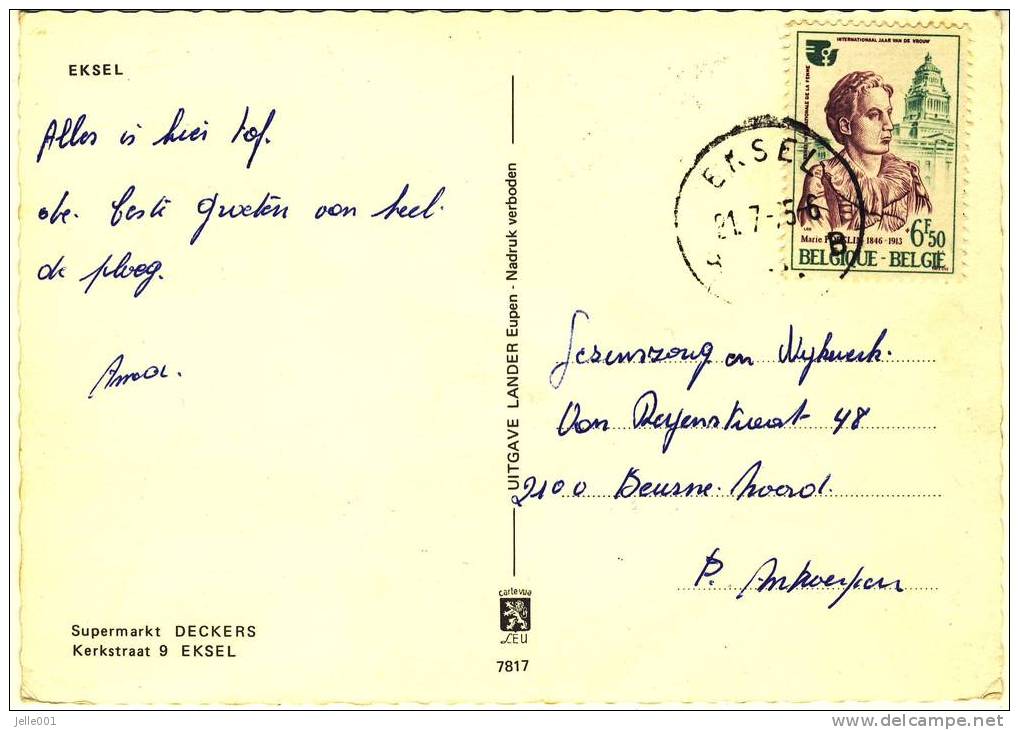 EKSEL
Alles is hier tof.
de beste groeten van heel
de ploeg.
Supermarkt DECKERS
Kerkstraat 9 EKSEL
UITGAVE LANDER Eupen - Nadruk verboden
carte vue
LEU
7817
INTERNATIONAAL JAAR VAN DE VROUW
INTERNATIONALE DE LA FEMME
Marie POPELIN 1846-1913
6F50
BELGIQUE - BELGIË
EKSEL
21.7-
B
en Wijkwerk.
Van 48
2100 Deurne-Noord.
P. Antwerpen
jelle001
delcampe.net